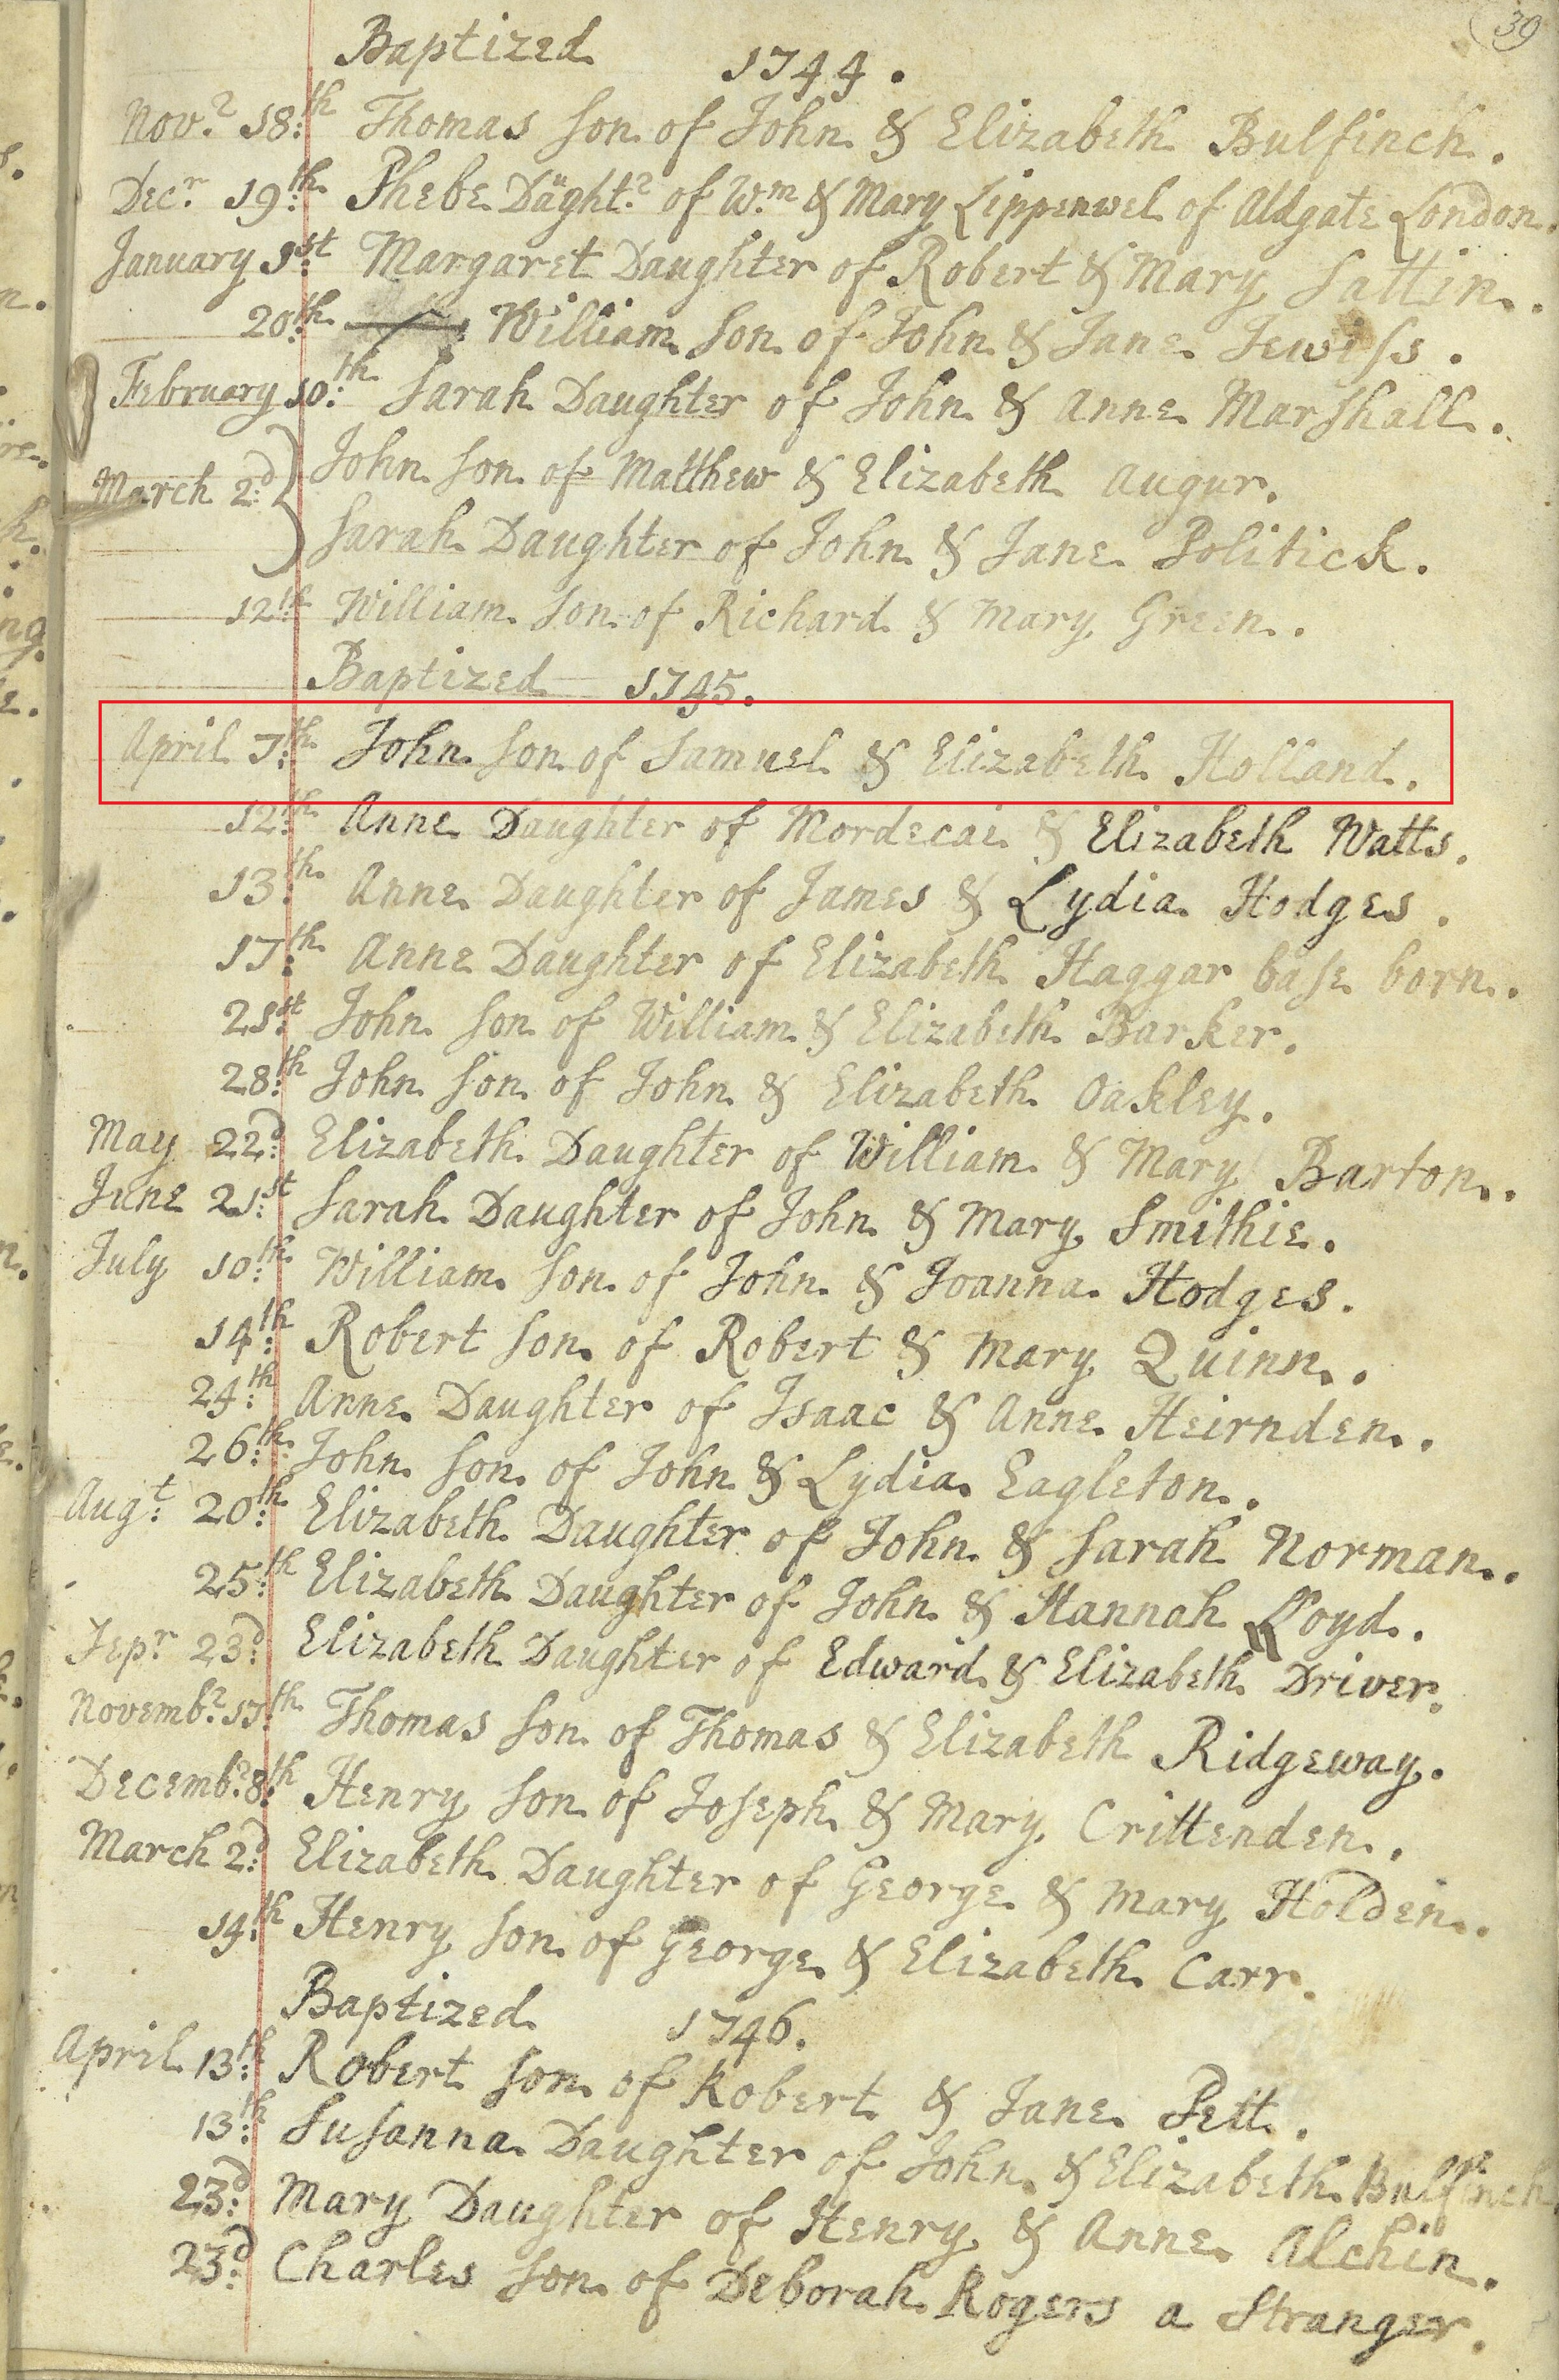 39
Baptized 1744.
Novr. 18:th Thomas son of John & Elizabeth Bulfinch.
Decr. 19:th Phebe Daught:r of Wm. & Mary Lippenwel of Aldgate London.
January 1:st Margaret Daughter of Robert & Mary Sattin.
20:th William son of John & Jane Jewiss.
February 10:th Sarah Daughter of John & Anne Marshall.
March 2:d John son of Matthew & Elizabeth Augur.
Sarah Daughter of John & Jane Politick.
12th William son of Richard & Mary Green.
Baptized 1745.
April 7:th John son of Samuel & Elizabeth Holland.
12:th Anne Daughter of Mordecai & Elizabeth Watts.
13:th Anne Daughter of James & Lydia Hodges.
17:th Anne Daughter of Elizabeth Haggar base born.
21:st John son of William & Elizabeth Barker.
28:th John son of John & Elizabeth Oakley.
May 22:d Elizabeth Daughter of William & Mary Barton.
June 21:st Sarah Daughter of John & Mary Smithie.
July 10:th William son of John & Joanna Hodges.
14:th Robert son of Robert & Mary Quinn.
24:th Anne Daughter of Isaac & Anne Heirnden.
26:th John son of John & Lydia Eagleton.
Aug:t 20:th Elizabeth Daughter of John & Sarah Norman.
25:th Elizabeth Daughter of John & Hannah Lloyd.
Sepr 23:d Elizabeth Daughter of Edward & Elizabeth Driver.
Novembr. 17:th Thomas son of Thomas & Elizabeth Ridgeway.
Decembr. 8:th Henry son of Joseph & Mary Crittenden.
March 2:d Elizabeth Daughter of George & Mary Holden.
14:th Henry son of George & Elizabeth Carr.
Baptized 1746.
April 13:th Robert son of Robert & Jane Pett.
13:th Susanna Daughter of John & Elizabeth Bulfinch
23:d Mary Daughter of Henry & Anne Alchin.
23:d Charles son of Deborah Rogers a Stranger.